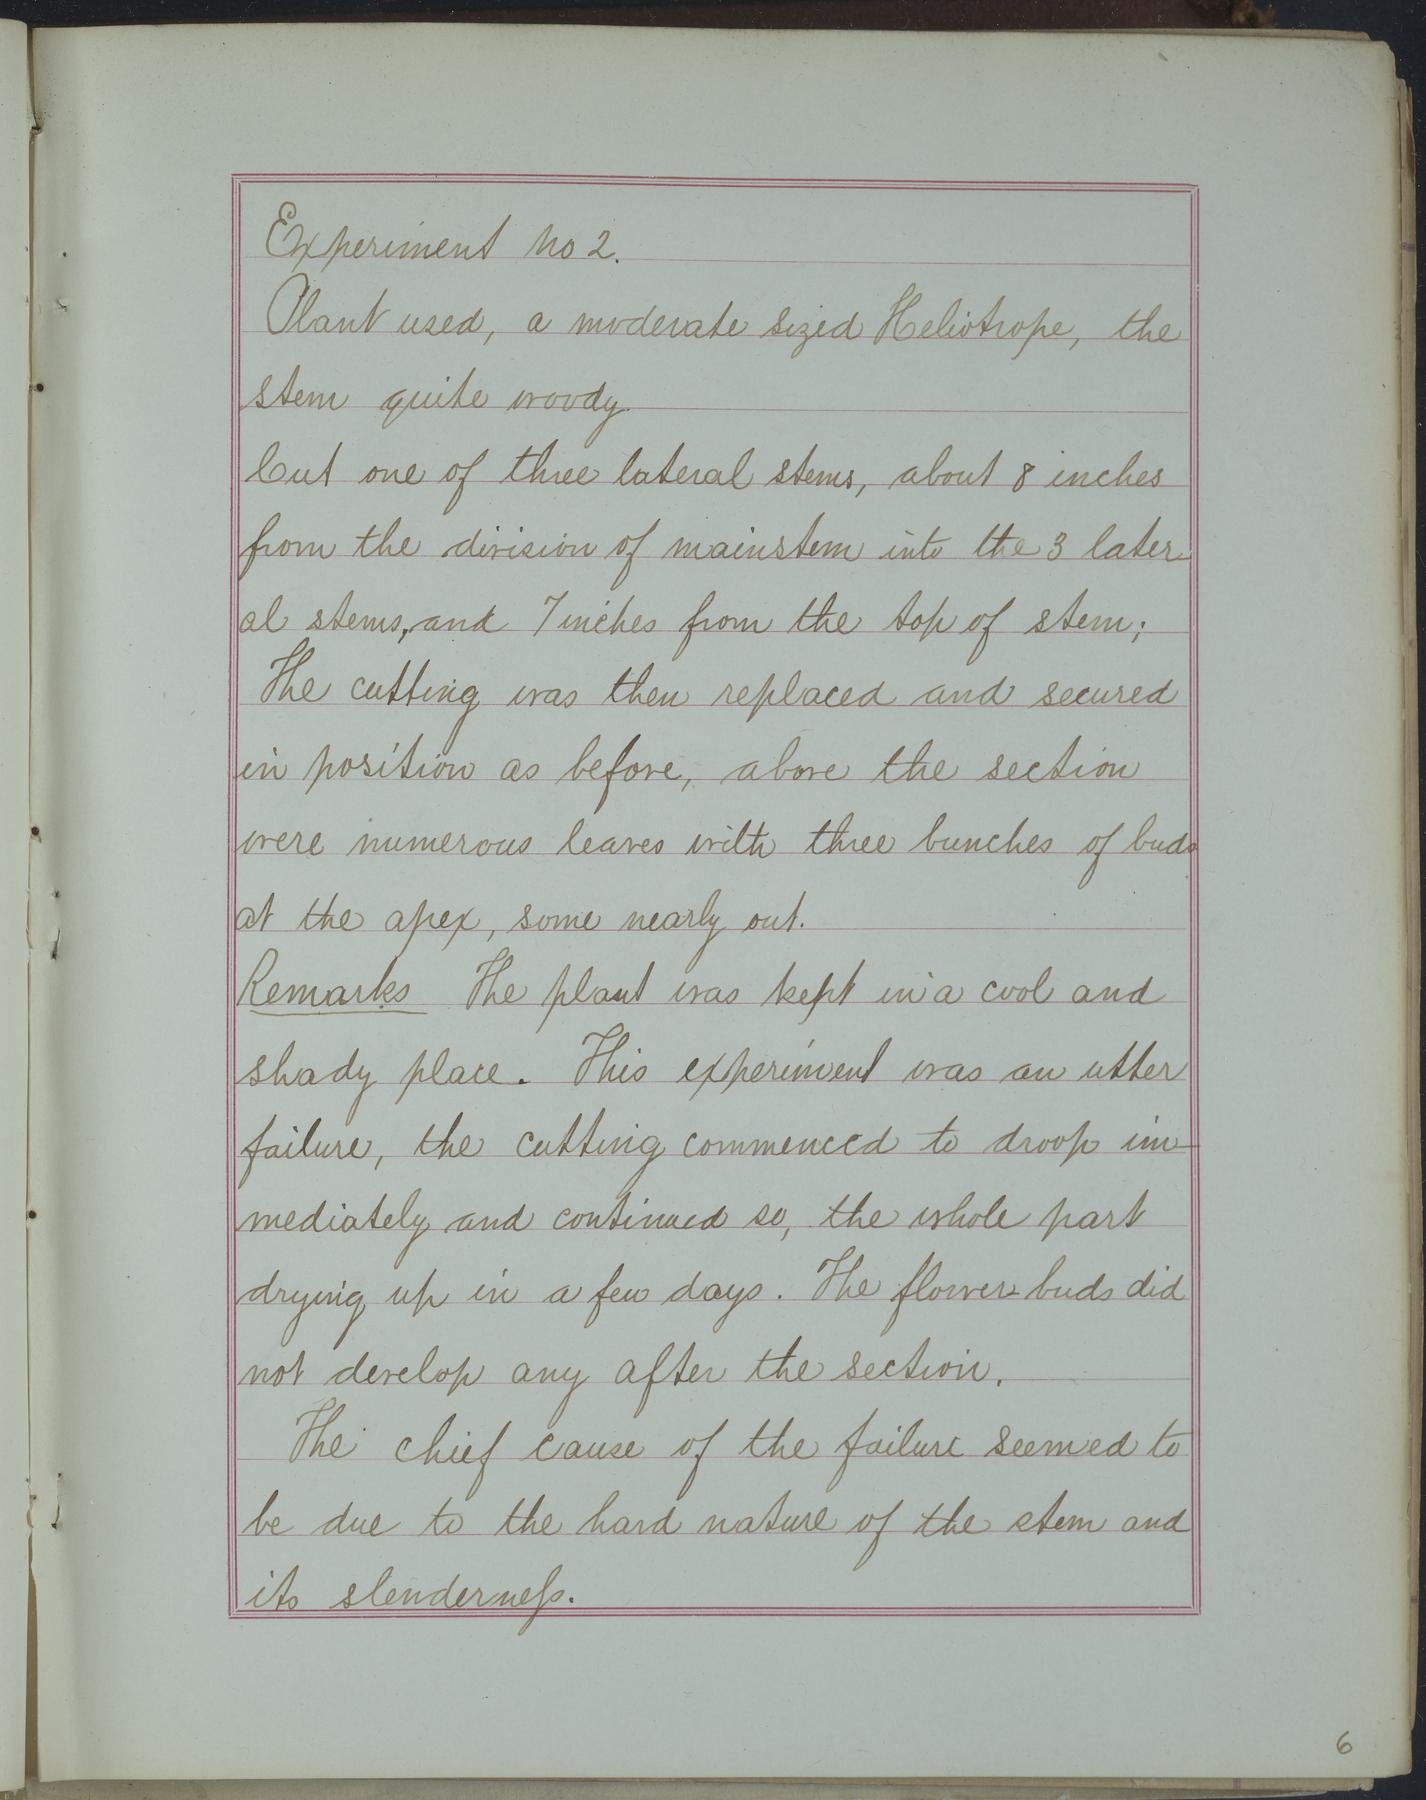 Experiment No 2.
Plant used, a moderate sized Heliotrope, the
stem quite woody.
Cut one of three lateral stems, about 8 inches
from the division of mainstem into the 3 later
al stems, and 7 inches from the top of stem;
The cutting was then replaced and secured
in position as before, above the section
were numerous leaves with three bunches of buds
at the apex, some nearly out.
Remarks The plant was kept in a cool and
shady place. This experiment was an utter
failure, the cutting commenced to droop im-
mediately and continued so, the whole part
drying up in a few days. The flower buds did
not develop any after the section.
The chief cause of the failure seemed to
be due to the hard nature of the stem and
its slenderneſs.
6